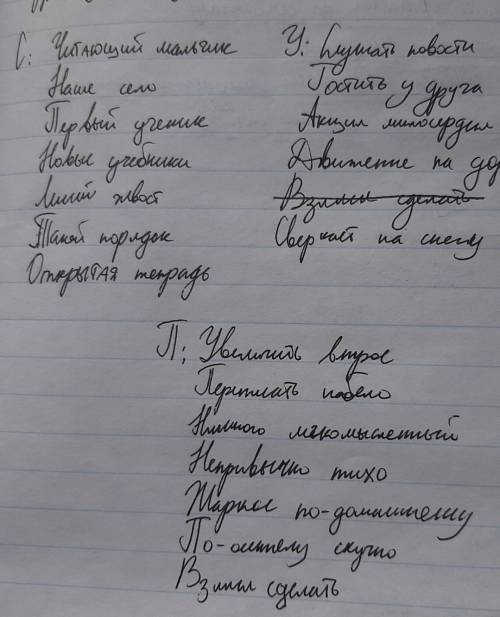 С: Читающий мальчик
Наше село
Первый ученик
Новые учебники
Лисий хвост
Такой порядок
Открытая тетрадь
У: Слушать новости
Гостить у друга
Акции милосердия
Движение по до
Взялись сделать
Сверкает на снегу
П: Увеличить втрое
Переписать набело
Немного легкомысленный
Непривычно тихо
Жаркое по-домашнему
По-осеннему скучно
сделать